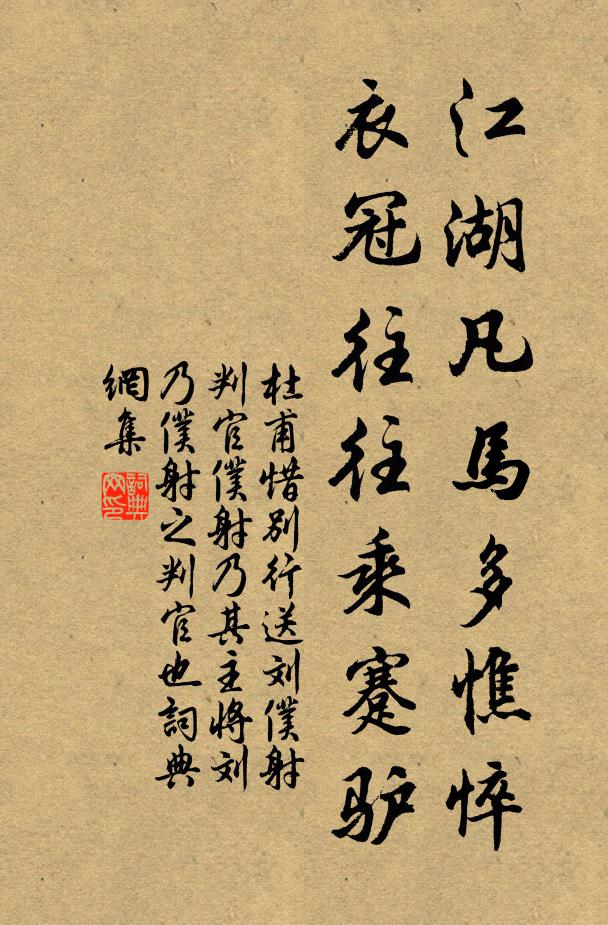 江湖凡馬多憔悴
衣冠往往乘蹇驴
杜甫惜别行送刘僕射
判官僕射乃其主将刘
乃僕射之判官也詞典
網集
詞典
网印